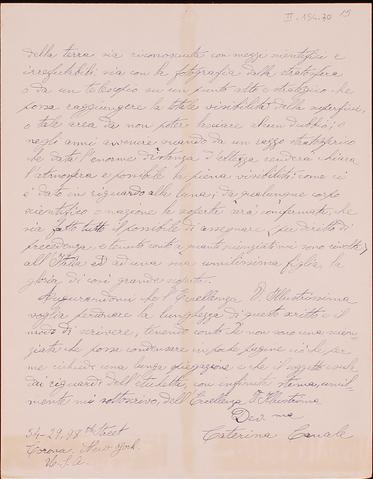 II-154.30 15
della terra sia riconosciuta con mezzi scientifici e
irrefutabili, sia con la fotografia dalla stratosfera
o da un telescopio su un punto alto e strategico che
possa raggiungere la totale visibilità della superficie,
o tale area da non poter lasciare alcun dubbio; o
negli anni avvenire quando da un razzo stratosferico
che data l'enorme distanza d'altezza renderà chiara
l'atmosfera e possibile la piena visibilità come ci
è dato in riguardo alla luna, da qualunque corpo
scientifico o nazione la scoperta sarà confermata, che
sia fatto tutto il possibile di assegnare per diritto di
precedenza, e tenuto conto a quanti rinunziati mi sono
all'Italia ed ad una sua umilissima figlia la
gloria di così grande scoperta.
Augurandomi che l'Eccellenza V. Illustrissima
voglia perdonare la lunghezza di questo scritto e il
modo di scrivere, tenendo conto che non sono una
che possa condensare in poche pagine ciò che per
me richiede una lunga spiegazione e che il
dai riguardi dell'etichetta, con stima,
mente mi sottoscrivo, dell'Eccellenza V. Illustrissima
Dev.ma
Caterina Canale
34-29, 98th Street
Corona, New York.
U.S.A.